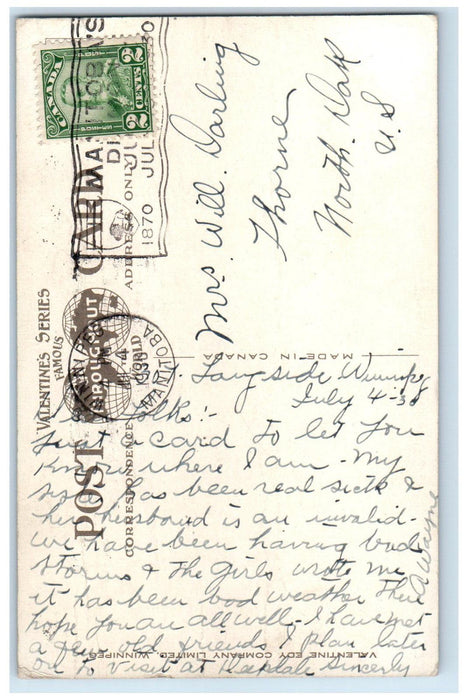 CANADA
2 CENTS 2
MANITOBA'S
DIAMOND JUBILEE
1870 JULY 1930
WINNIPEG
PM
JUL 4
1930
MANITOBA
VALENTINE'S SERIES
FAMOUS THROUGHOUT THE WORLD
POST CARD
CORRESPONDENCE
ADDRESS ONLY
MADE IN CANADA
VALENTINE EDY COMPANY LIMITED, WINNIPEG
Mrs Will. Darling
Thorne
North Dak
U S
Langside Winnipeg
July 4-30
Dear Folks:-
Just a card to let you
know where I am - My
sister has been real sick &
her husband is an invalid.
We have been having bad
storms & the girls wrote me
it has been bad weather there
hope you are all well - I have met
a few old friends I plan later
on to visit at Sincerly
A Wayne